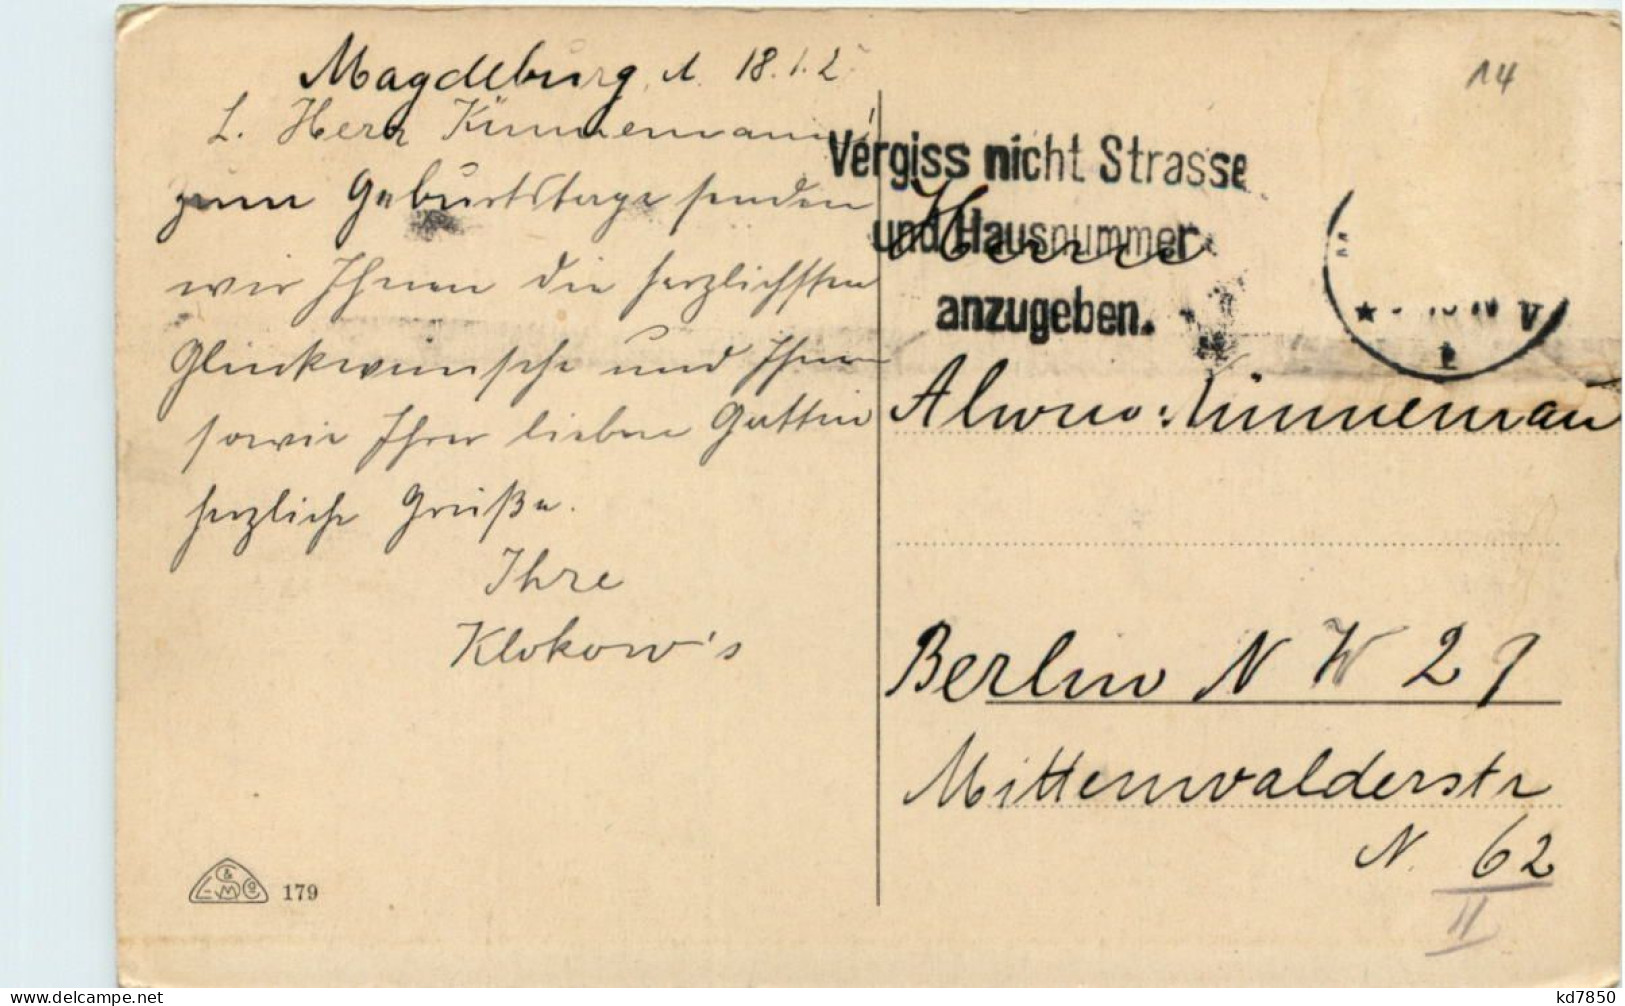 Magdeburg, d. 18.1.2
L. Herr Künnemann!
zum Geburtstage senden
wir Ihnen die herzlichsten
Glückwünsche und Ihnen
sowie Ihrer lieben Gattin
herzliche Grüße.
Ihre
Klokow's
& L M Co 179
14
Vergiss nicht Strasse
und Hausnummer
anzugeben.
Herrn
V
Künnemann
Berlin N W 21
Mittenwalderstr
N. 62
II
delcampe.net
kd7850